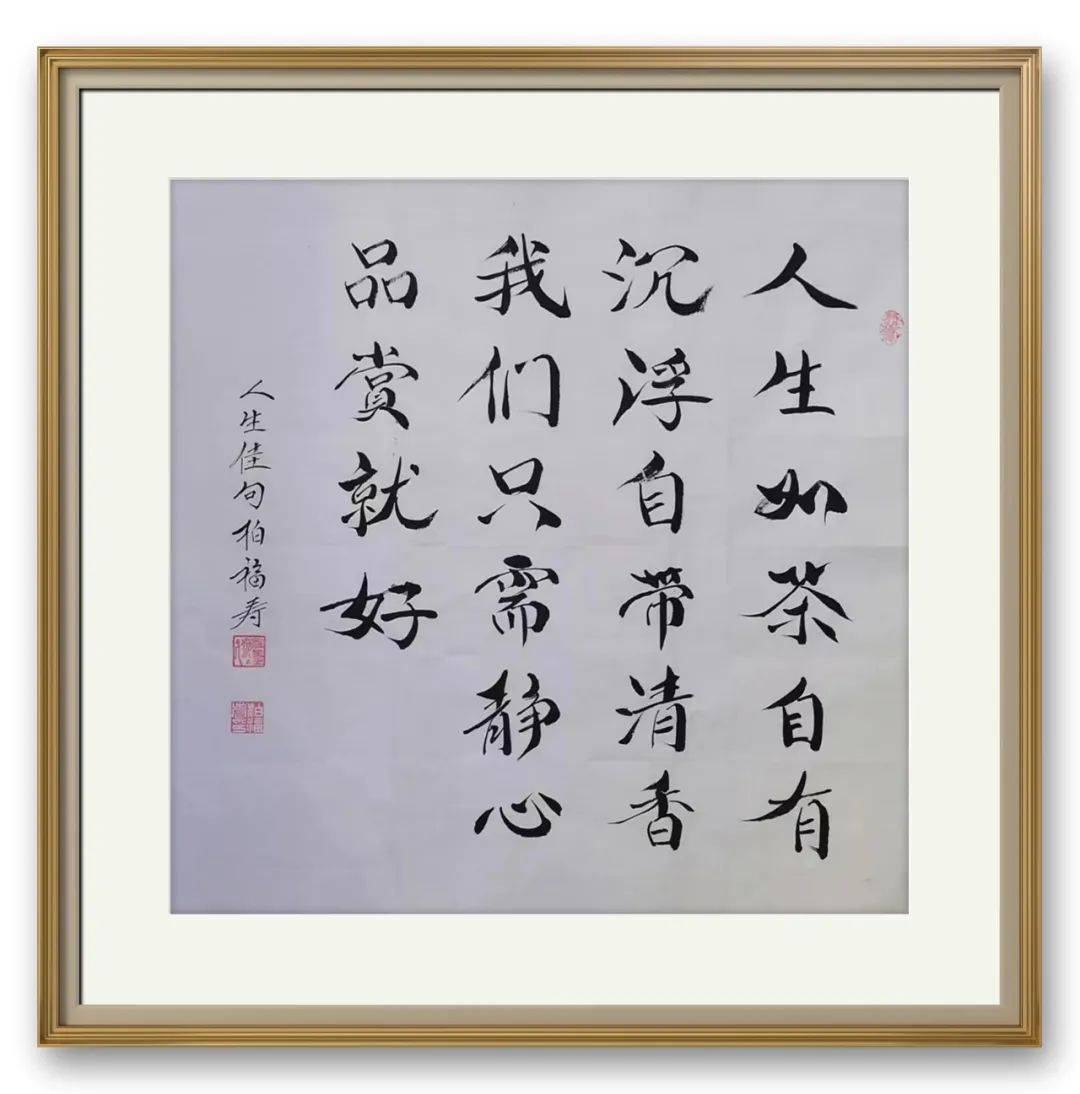 人生如茶自有
沉浮自带清香
我们只需静心
品赏就好
人生佳句柏福寿